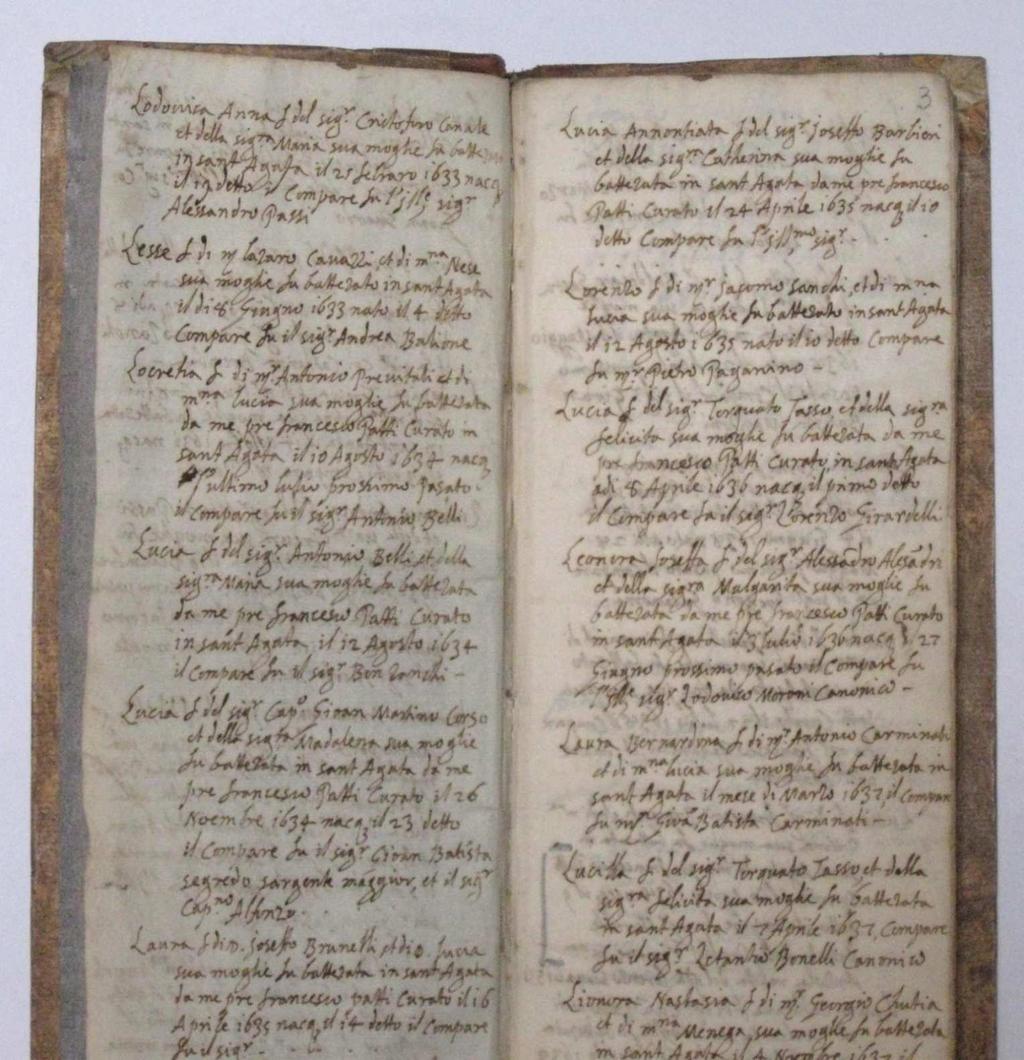 Lodovica Anna f del sigr Cristoforo Canale
et della sigra Maria sua moglie fu battezata
in sant Agata il 25 febraro 1633 nacq
il 19 detto Compare fu l'Ille sigr
Alessandro Passi
Lesse f di mr lazaro Cavazzi et di mna Nese
sua moglie fu battezato in sant Agata
il di 8 Giugno 1633 nato il 4 detto
Compare fu il sigr Andrea Balione
Locretia f di mr Antonio Previtali et di
mna lucia sua moglie fu battezata
da me pre francesco Patti Curato in
sant Agata il 10 Agosto 1634 nacq
l'ultimo lulio prossimo pasato
il Compare fu il sigr Antonio Belli
Lucia f del sigr Antonio Belli et della
sigra Maria sua moglie fu battezata
da me pre francesco Patti Curato
in sant Agata il 12 Agosto 1634
il Compare fu il sigr Bon
Lucia f del sigr Capo Gioan Martino Corso
et della sigra Madalena sua moglie
fu battezata in sant Agata da me
pre francesco Patti Curato il 26
Noembre 1634 nacq il 23 detto
il Compare fu il sigr Gioan Batista
segredo sargente maggior, et il sigr
Capno Alfonzo
Laura f di Josetto Brunelli et di lucia
sua moglie fu battezata in sant Agata
da me pre francesco patti Curato il 16
Aprile 1635 nacq il 14 detto il Compare
fu il sigr
3
Lucia Annontiata f del sigr Josetto Barbieri
et della sigra Catherina sua moglie fu
battezata in sant Agata da me pre francesco
Patti Curato il 24 Aprile 1635 nacq il 10
detto Compare fu l'Illmo sigr
Lorenzo f di mr Jacomo Sanchi, et di mna
lucia sua moglie fu battezato in sant Agata
il 12 Agosto 1635 nato il 10 detto Compare
fu mr Pietro Paganino
Lucia f del sigr Torquato Tasso, et della sigra
felicita sua moglie fu battezata da me
pre francesco Patti Curato in sant Agata
adi 8 Aprile 1636 nacq il primo detto
il Compare fu il sigr Lorenzo Girardelli
Leonora Josetta f del sigr Alessadro Alesadri
et della sigra Malgarita sua moglie fu
battezata da me pre francesco Patti Curato
in sant Agata il 3 lulio 1636 nacq il 27
Giugno prossimo pasato il Compare fu
l'Ille sigr Lodovico Moroni Canonico
Laura Bernardina f di mr Antonio Carminati
et di mna lucia sua moglie fu battezata in
sant Agata il mese di Marzo 1637 il Compare
fu mr Batista Carminati
Lucilla f del sigr Torquato Tasso, et della
sigra felicita sua moglie fu battezata
in sant Agata il 7 Aprile 1637, Compare
fu il sigr Bonelli Canonico
Lionora Nastasia f di mr Georgio Chutia
et di mna Menega sua moglie fu battezata
in sant Agata il 4 Noembre 1637 il